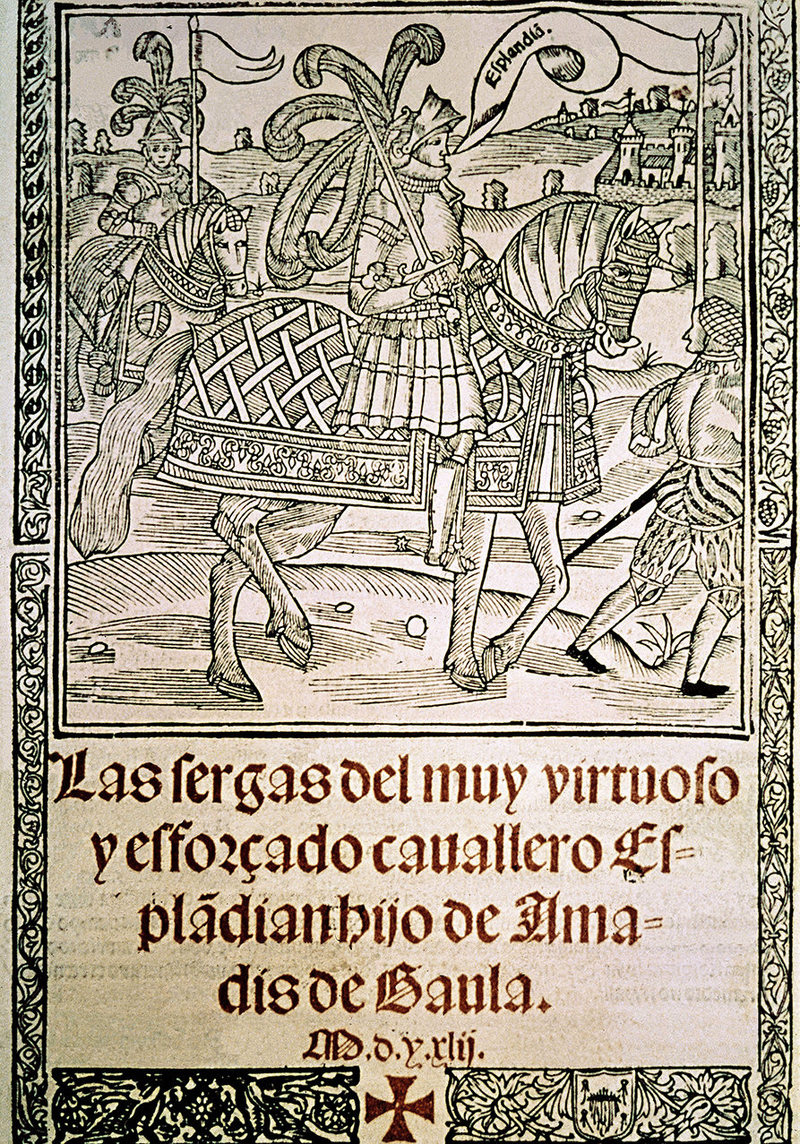 Eſplandiã.
Las ſergas del muy virtuoſo
y eſforçado cauallero Eſ=
plãdian hijo de Ama=
dis de Gaula.
M.d.y.xlij.